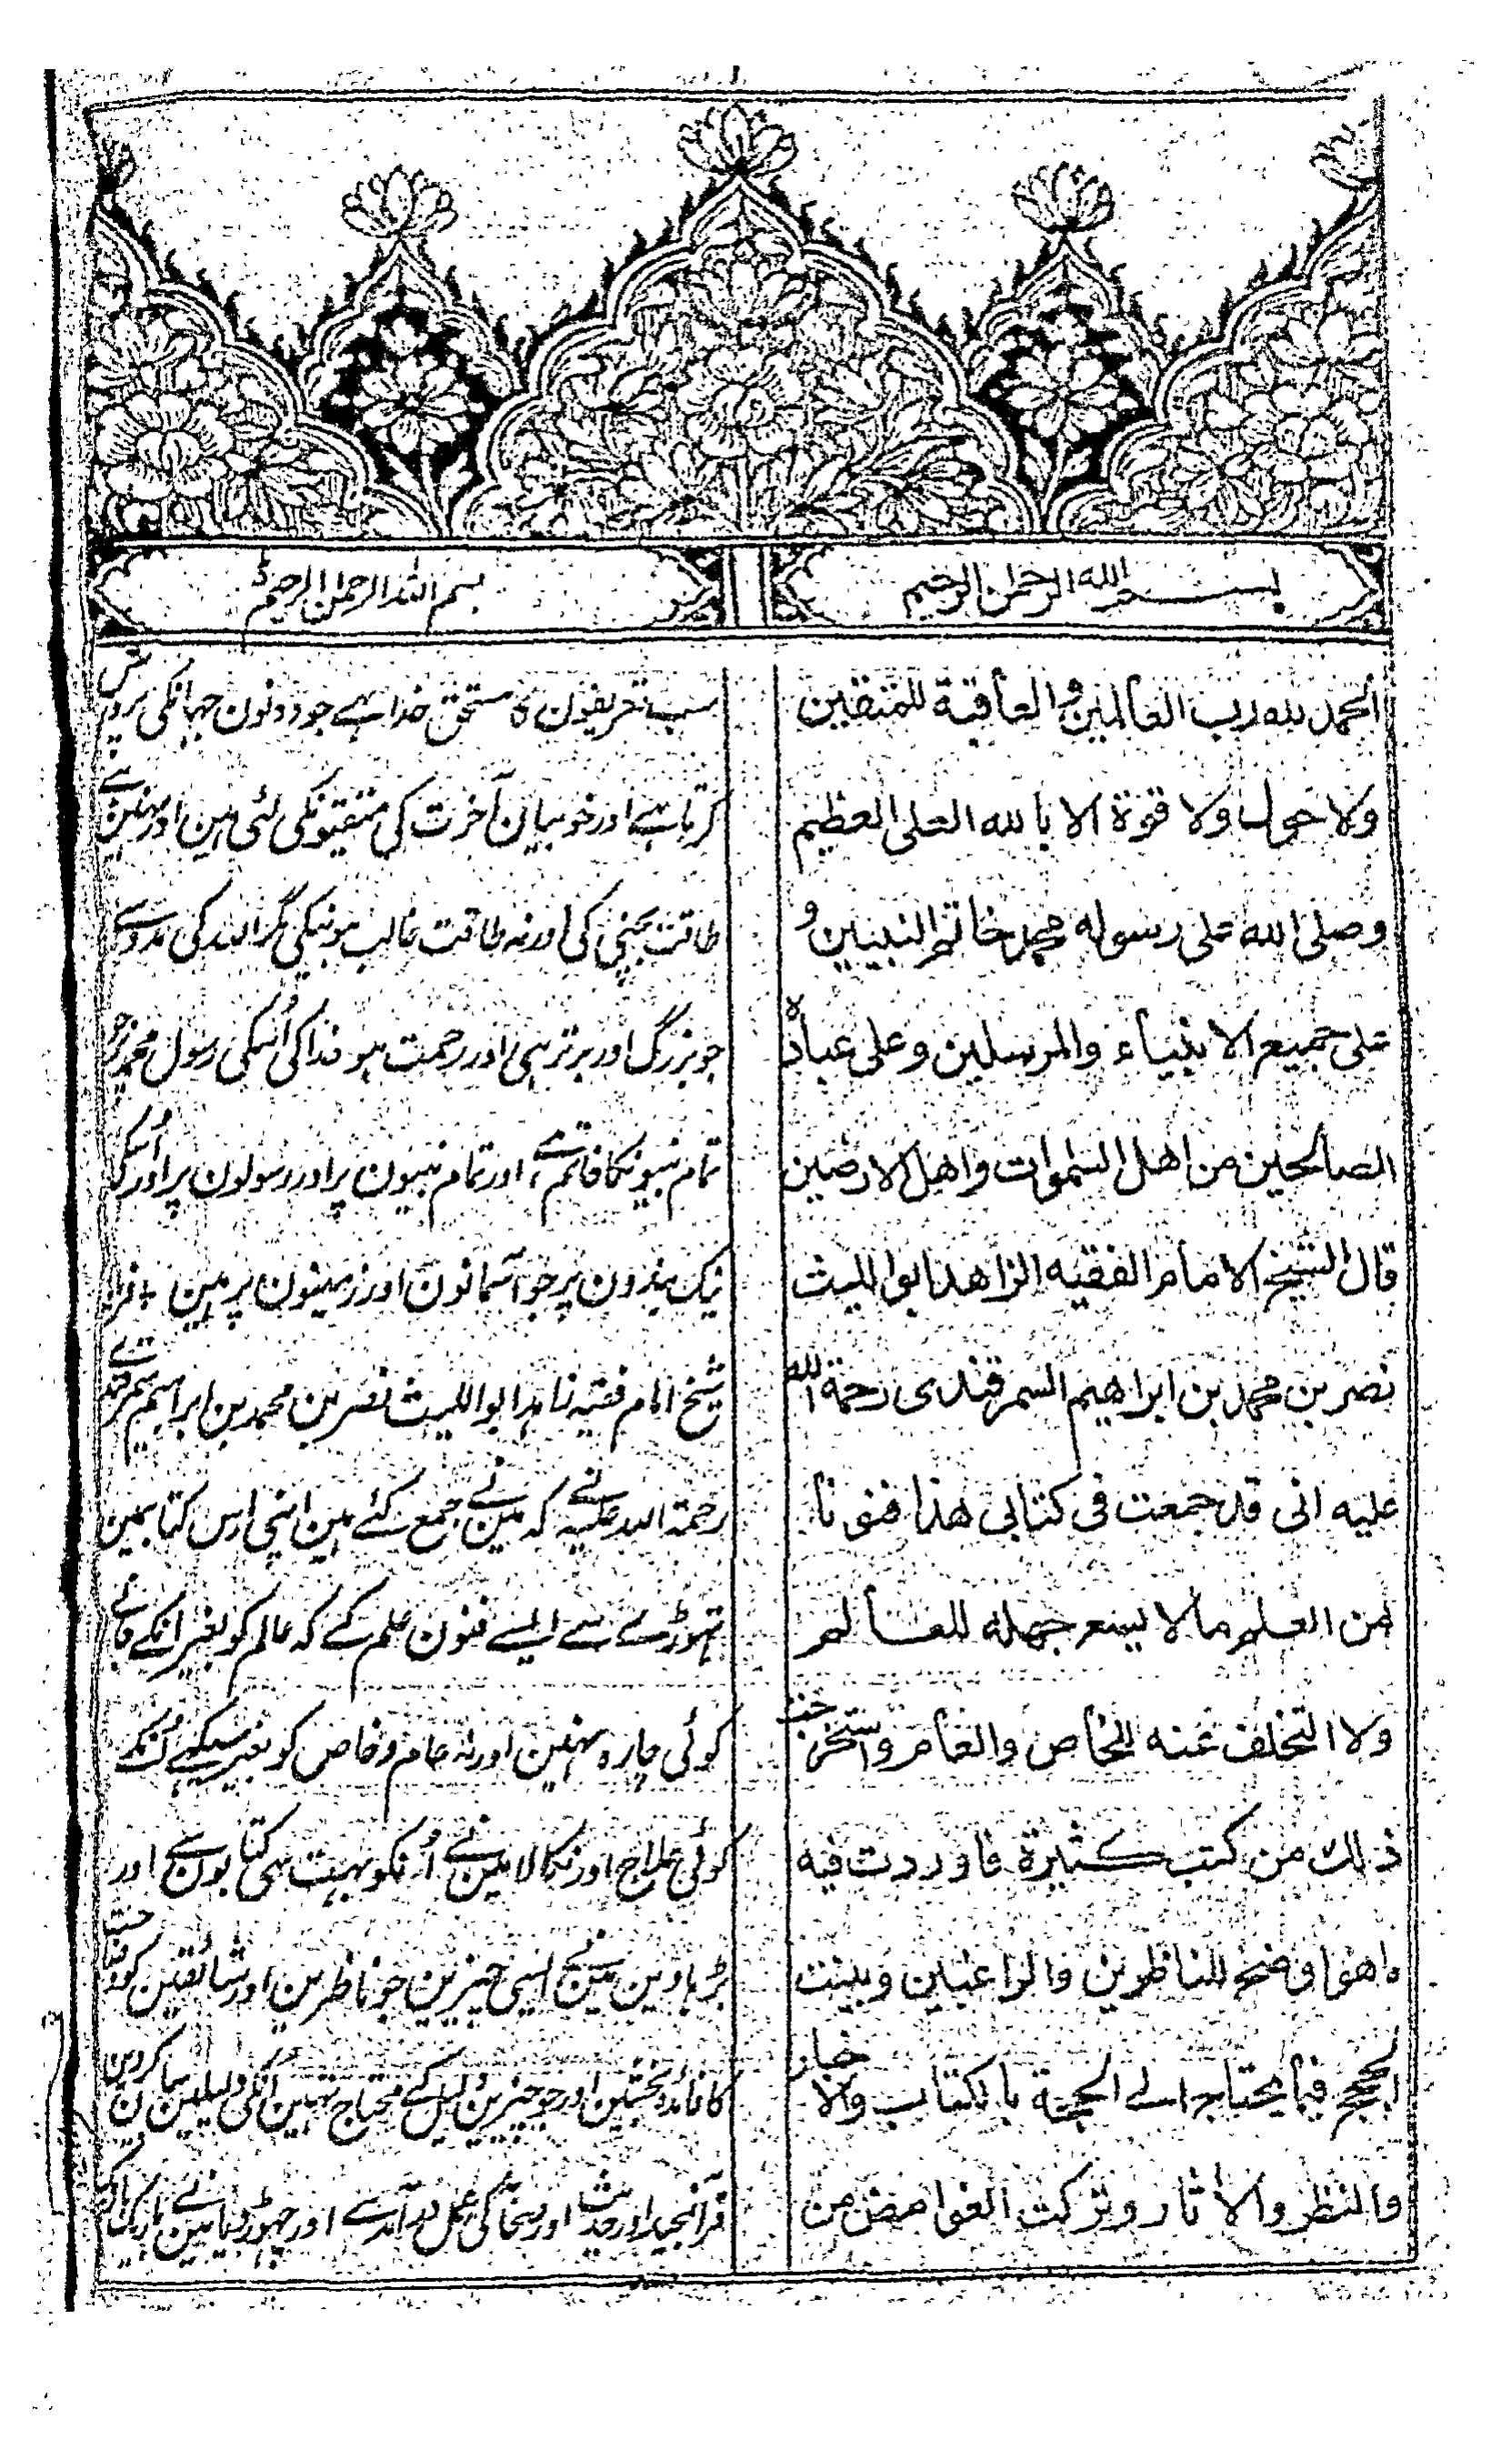 بسم الله الرحمن الرحيم
الحمد لله رب العالمين والعاقبة للمتقين
ولا حول ولا قوة الا بالله العلى العظيم
وصلى الله على رسوله محمد خاتم النبيين و
على جميع الانبياء والمرسلين وعلى عباده
الصالحين من اهل السموات واهل الارضين
قال الشيخ الامام الفقيه الزاهد ابو الليث
نصر بن محمد بن ابراهيم السمرقندى رحمة الله
عليه انى قد جمعت فى كتابى هذا فنونا
من العلم ما لا يسع جهله للعالم
ولا التخلف عنه الخاص والعام واستخرجت
ذلك من كتب كثيرة فاوردت فيه
ما هو اوضح للناظرين والراغبين وبينت
الحجج فيما يحتاج الى الحجة بالكتاب والاخبار
والنظر والاثار وتركت الغوامض من
بسم الله الرحمن الرحيم
سب تعريفون كا مستحق خدا ہے جو دونون جہانكى پرورش
كرتا ہے اور خوبيان آخرت كى متقيونكى لئى ہين اور نہين ہے
طاقت بچنى كى اور نہ طاقت غالب ہونيكى مگر الله كى مدد سے
جو بزرگ اور برتر ہى اور رحمت ہو خدا كى اُسكى رسول محمد پر جو
تمام نبيونكا خاتم ہے اور تمام نبيون پر اور رسولون پر اور اُسكے
نيك بندون پر جو آسمانون اور زمينون پر ہين ؛ فرمايا
شيخ امام فقيہ زاہد ابو الليث نصر بن محمد بن ابراہيم سمرقندى
رحمة الله عليہ نے كہ مين نے جمع كئے ہين اپنى اس كتاب مين
تہوڑے سے ايسے فنون علم كے كہ عالم كو بغير انكے جانے
كوئى چارہ نہين اور نہ عام و خاص كو بغير سيكہے اُنكے
كوئى علاج اور نكالا مين نے اُنكو بہت سى كتابون سے اور
بڑہا دين مين نے ايسى چيزين جو ناظرين اور شائقين كو
كا فائدہ بخشين اور جو چيزين دليل كے محتاج تہين اُنكى دليلين بيان كردين
قرآن مجيد اور حديث اور صحابہ كى عمل درآمد سے اور چہوڑ ديا مين نے